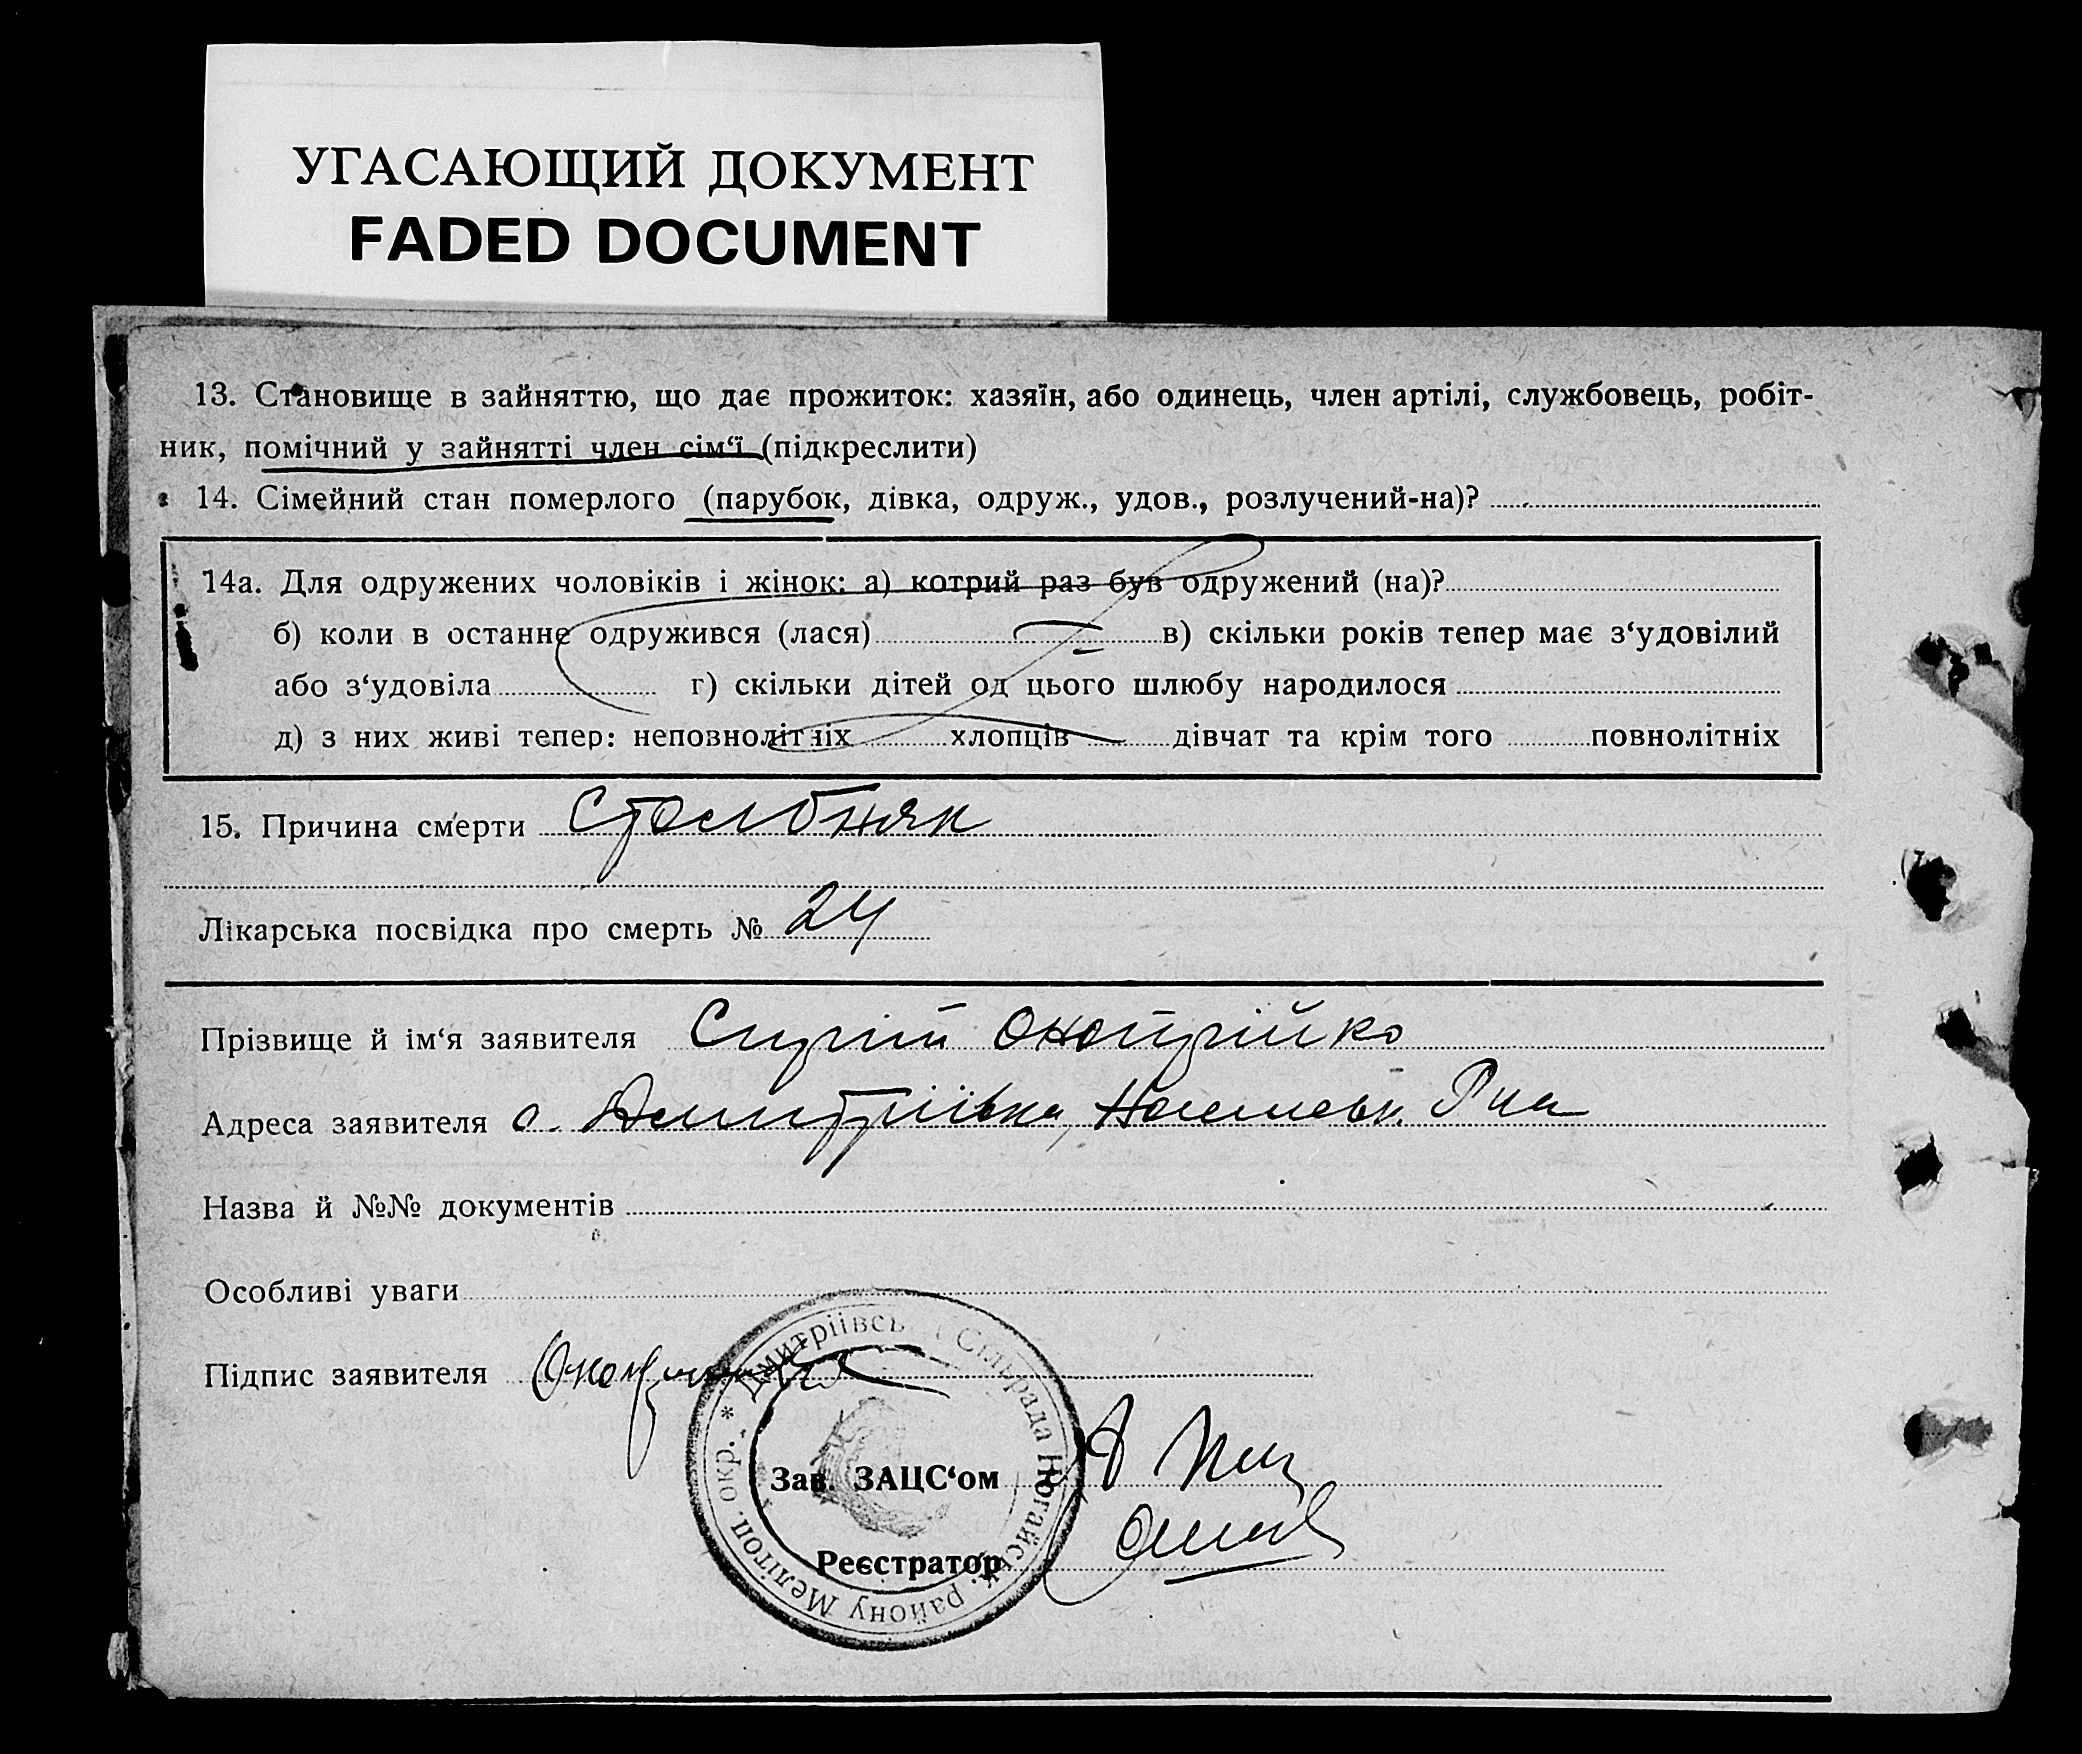 УГАСАЮЩИЙ ДОКУМЕНТ
FADED DOCUMENT
13. Становище в зайняттю, що дає прожиток: хазяїн, або одинець, член артілі, службовець, робіт-
ник, помічний у зайнятті член сім‘ї (підкреслити)
14. Сімейний стан померлого (парубок, дівка, одруж., удов., розлучений-на)?
14а. Для одружених чоловіків і жінок: а) котрий раз був одружений (на)?
б) коли в останнє одружився (лася) в) скільки років тепер має з‘удовілий
або з‘удовіла г) скільки дітей од цього шлюбу народилося
д) з них живі тепер: неповнолітніх хлопців дівчат та крім того повнолітніх
15. Причина смерти Столбняк
Лікарська посвідка про смерть № 24
Прізвище й ім‘я заявителя Сергій Онопрійко
Адреса заявителя с. Дмитріївка, Р-на
Назва й №№ документів
Особливі уваги
Підпис заявителя
* Дмитріївська Сільрада Ногайськ. району Мелітоп. окр.
Зав. ЗАЦС‘ом
Реєстратор